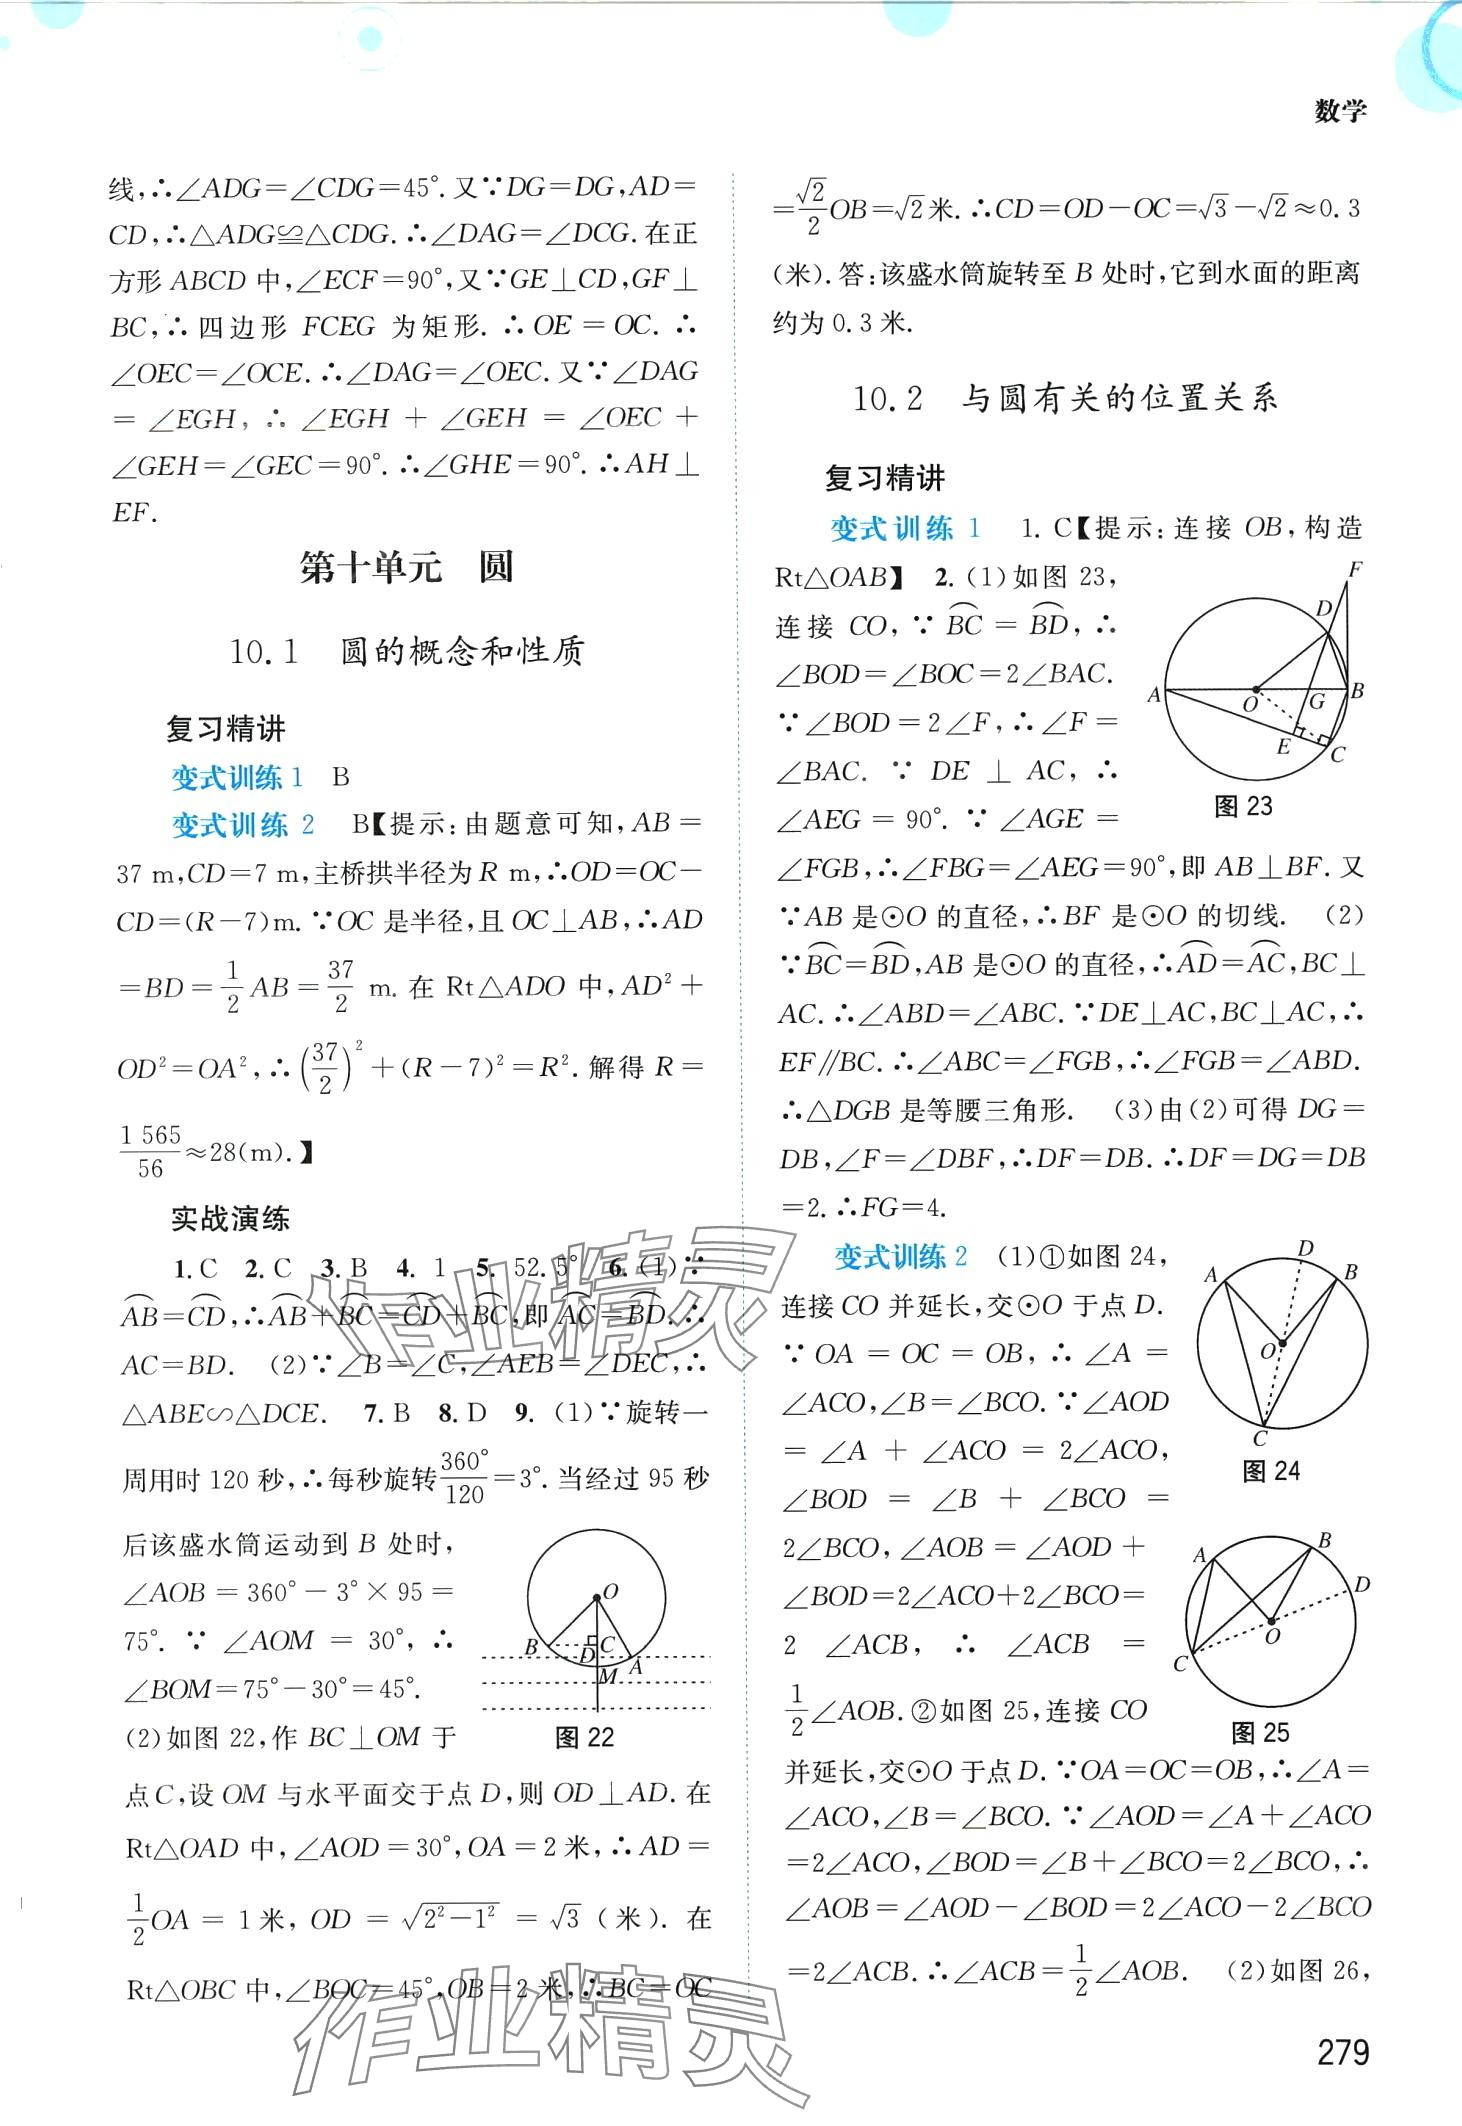 数学
线,∴∠ADG=∠CDG=45°.又∵DG=DG,AD=
CD,∴△ADG≌△CDG.∴∠DAG=∠DCG.在正
方形 ABCD 中,∠ECF=90°,又∵GE⊥CD,GF⊥
BC,∴四边形 FCEG 为矩形.∴OE=OC.∴
∠OEC=∠OCE.∴∠DAG=∠OEC.又∵∠DAG
=∠EGH,∴∠EGH+∠GEH=∠OEC+
∠GEH=∠GEC=90°.∴∠GHE=90°.∴AH⊥
EF.
第十单元 圆
10.1 圆的概念和性质
复习精讲
变式训练 1 B
变式训练 2 B【提示:由题意可知,AB=
37 m,CD=7 m,主桥拱半径为 R m,∴OD=OC-
CD=(R-7)m.∵OC 是半径,且 OC⊥AB,∴AD
=BD=1/2 AB=37/2 m.在 Rt△ADO 中,AD²+
OD²=OA²,∴(37/2)²+(R-7)²=R².解得 R=
1 565/56≈28(m).】
实战演练
1.C 2.C 3.B 4.1 5.52.5° 6.(1)∵
⌒AB=⌒CD,∴⌒AB+⌒BC=⌒CD+⌒BC,即⌒AC=⌒BD.∴
AC=BD. (2)∵∠B=∠C,∠AEB=∠DEC,∴
△ABE∽△DCE. 7.B 8.D 9.(1)∵旋转一
周用时 120 秒,∴每秒旋转360°/120=3°.当经过 95 秒
后该盛水筒运动到 B 处时,
∠AOB=360°-3°×95=
75°.∵∠AOM=30°,∴
∠BOM=75°-30°=45°.
(2)如图 22,作 BC⊥OM 于
O
B
D
C
M
A
图 22
点 C,设 OM 与水平面交于点 D,则 OD⊥AD.在
Rt△OAD 中,∠AOD=30°,OA=2 米,∴AD=
1/2OA=1 米,OD=√(2²-1²)=√3(米).在
Rt△OBC 中,∠BOC=45°,OB=2 米,∴BC=OC
=√2/2OB=√2米.∴CD=OD-OC=√3-√2≈0.3
(米).答:该盛水筒旋转至 B 处时,它到水面的距离
约为 0.3 米.
10.2 与圆有关的位置关系
复习精讲
变式训练 1 1.C【提示:连接 OB,构造
Rt△OAB】 2.(1)如图 23,
连接 CO,∵⌒BC=⌒BD,∴
∠BOD=∠BOC=2∠BAC.
∵∠BOD=2∠F,∴∠F=
∠BAC.∵DE⊥AC,∴
∠AEG=90°.∵∠AGE=
F
D
A
O
G
B
E
C
图 23
∠FGB,∴∠FBG=∠AEG=90°,即 AB⊥BF.又
∵AB 是⊙O 的直径,∴BF 是⊙O 的切线. (2)
∵⌒BC=⌒BD,AB 是⊙O 的直径,∴⌒AD=⌒AC,BC⊥
AC.∴∠ABD=∠ABC.∵DE⊥AC,BC⊥AC,∴
EF∥BC.∴∠ABC=∠FGB,∴∠FGB=∠ABD.
∴△DGB 是等腰三角形. (3)由(2)可得 DG=
DB,∠F=∠DBF,∴DF=DB.∴DF=DG=DB
=2.∴FG=4.
变式训练 2 (1)①如图 24,
连接 CO 并延长,交⊙O 于点 D.
∵OA=OC=OB,∴∠A=
∠ACO,∠B=∠BCO.∵∠AOD
=∠A+∠ACO=2∠ACO,
∠BOD=∠B+∠BCO=
2∠BCO,∠AOB=∠AOD+
∠BOD=2∠ACO+2∠BCO=
2∠ACB,∴∠ACB=
1/2∠AOB.②如图 25,连接 CO
D
A
B
O
C
图 24
A
B
D
O
C
图 25
并延长,交⊙O 于点 D.∵OA=OC=OB,∴∠A=
∠ACO,∠B=∠BCO.∵∠AOD=∠A+∠ACO
=2∠ACO,∠BOD=∠B+∠BCO=2∠BCO,∴
∠AOB=∠AOD-∠BOD=2∠ACO-2∠BCO
=2∠ACB.∴∠ACB=1/2∠AOB. (2)如图 26,
作业精灵
作业精灵
279